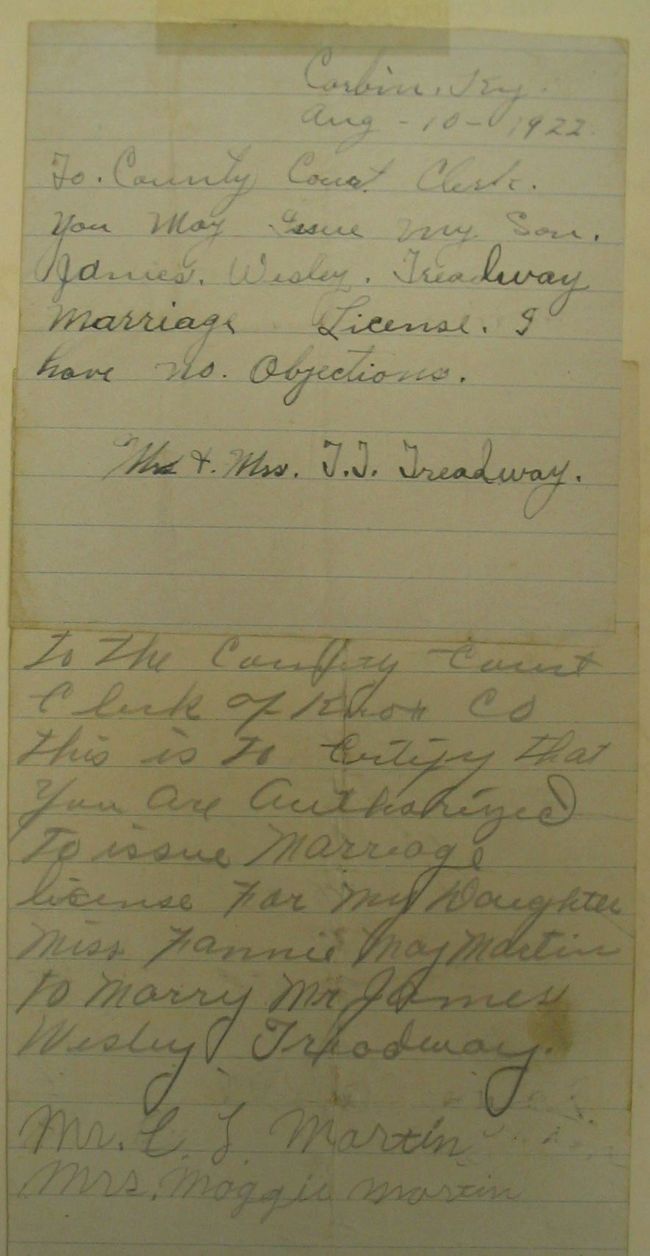 Corbin, Ky.
Aug - 10 - 1922.
To. County Court Clerk.
You May Issue my Son.
James. Wesley. Treadway
Marriage License. I
have no. Objections.
Mr &. Mrs. T.T. Treadway.
To The County Court
Clerk of Knox CO
this is to Certify that
You are Authorized
To issue Marriage
license For My Daughter
Miss Fannie May Martin
to Marry Mr James
Wesley Treadway.
Mr. C. L Martin
Mrs. Maggie Martin